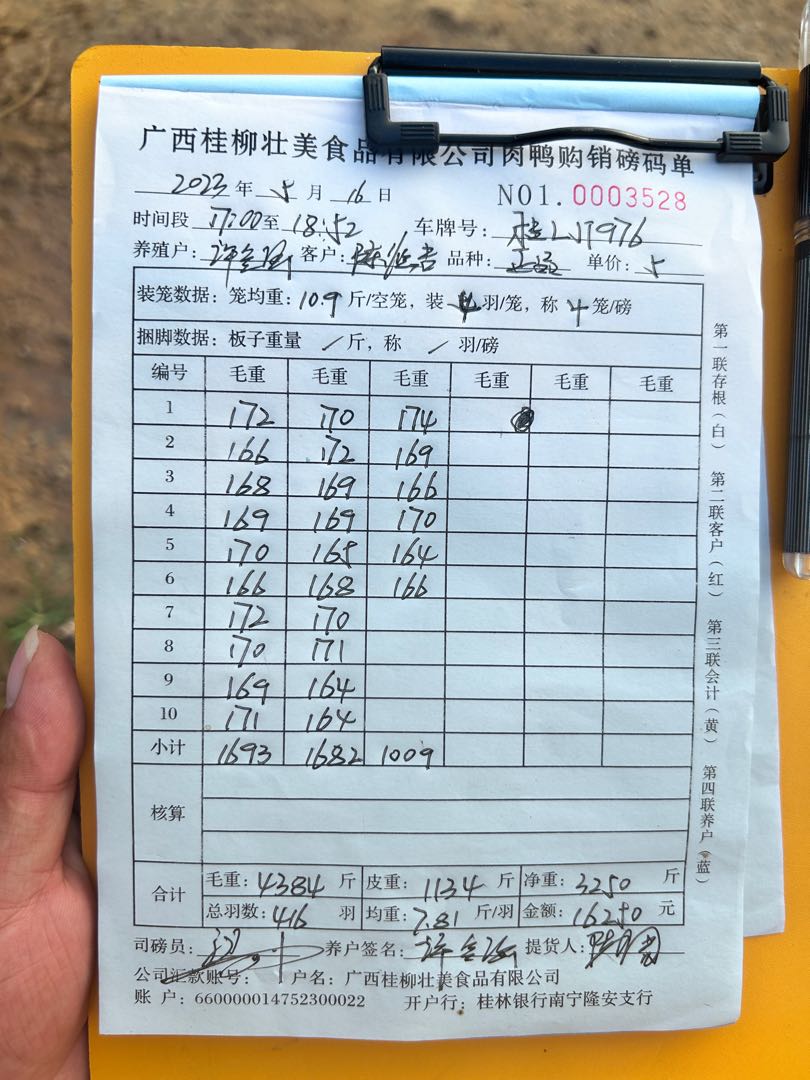 广西桂柳壮美食品有限公司肉鸭购销磅码单
2023 年 5 月 16 日 NO1. 0003528
时间段 17:00 至 18:52 车牌号: 桂LJT976
养殖户: 客户: 品种: 单价: 5
装笼数据: 笼均重: 10.9 斤/空笼, 装 4 羽/笼, 称 4 笼/磅
捆脚数据: 板子重量 / 斤, 称 / 羽/磅
编号 毛重 毛重 毛重 毛重 毛重 毛重
1 172 170 174
2 166 172 169
3 168 169 166
4 169 169 170
5 170 165 164
6 166 168 166
7 172 170
8 170 171
9 169 164
10 171 164
小计 1693 1682 1009
核算
合计 毛重: 4384 斤 皮重: 1134 斤 净重: 3250 斤
总羽数: 416 羽 均重: 7.81 斤/羽 金额: 16250 元
司磅员: 养户签名: 提货人:
公司汇款账号: 户名: 广西桂柳壮美食品有限公司
账 户: 660000014752300022 开户行: 桂林银行南宁隆安支行
第一联存根(白) 第二联客户(红) 第三联会计(黄) 第四联养户(蓝)